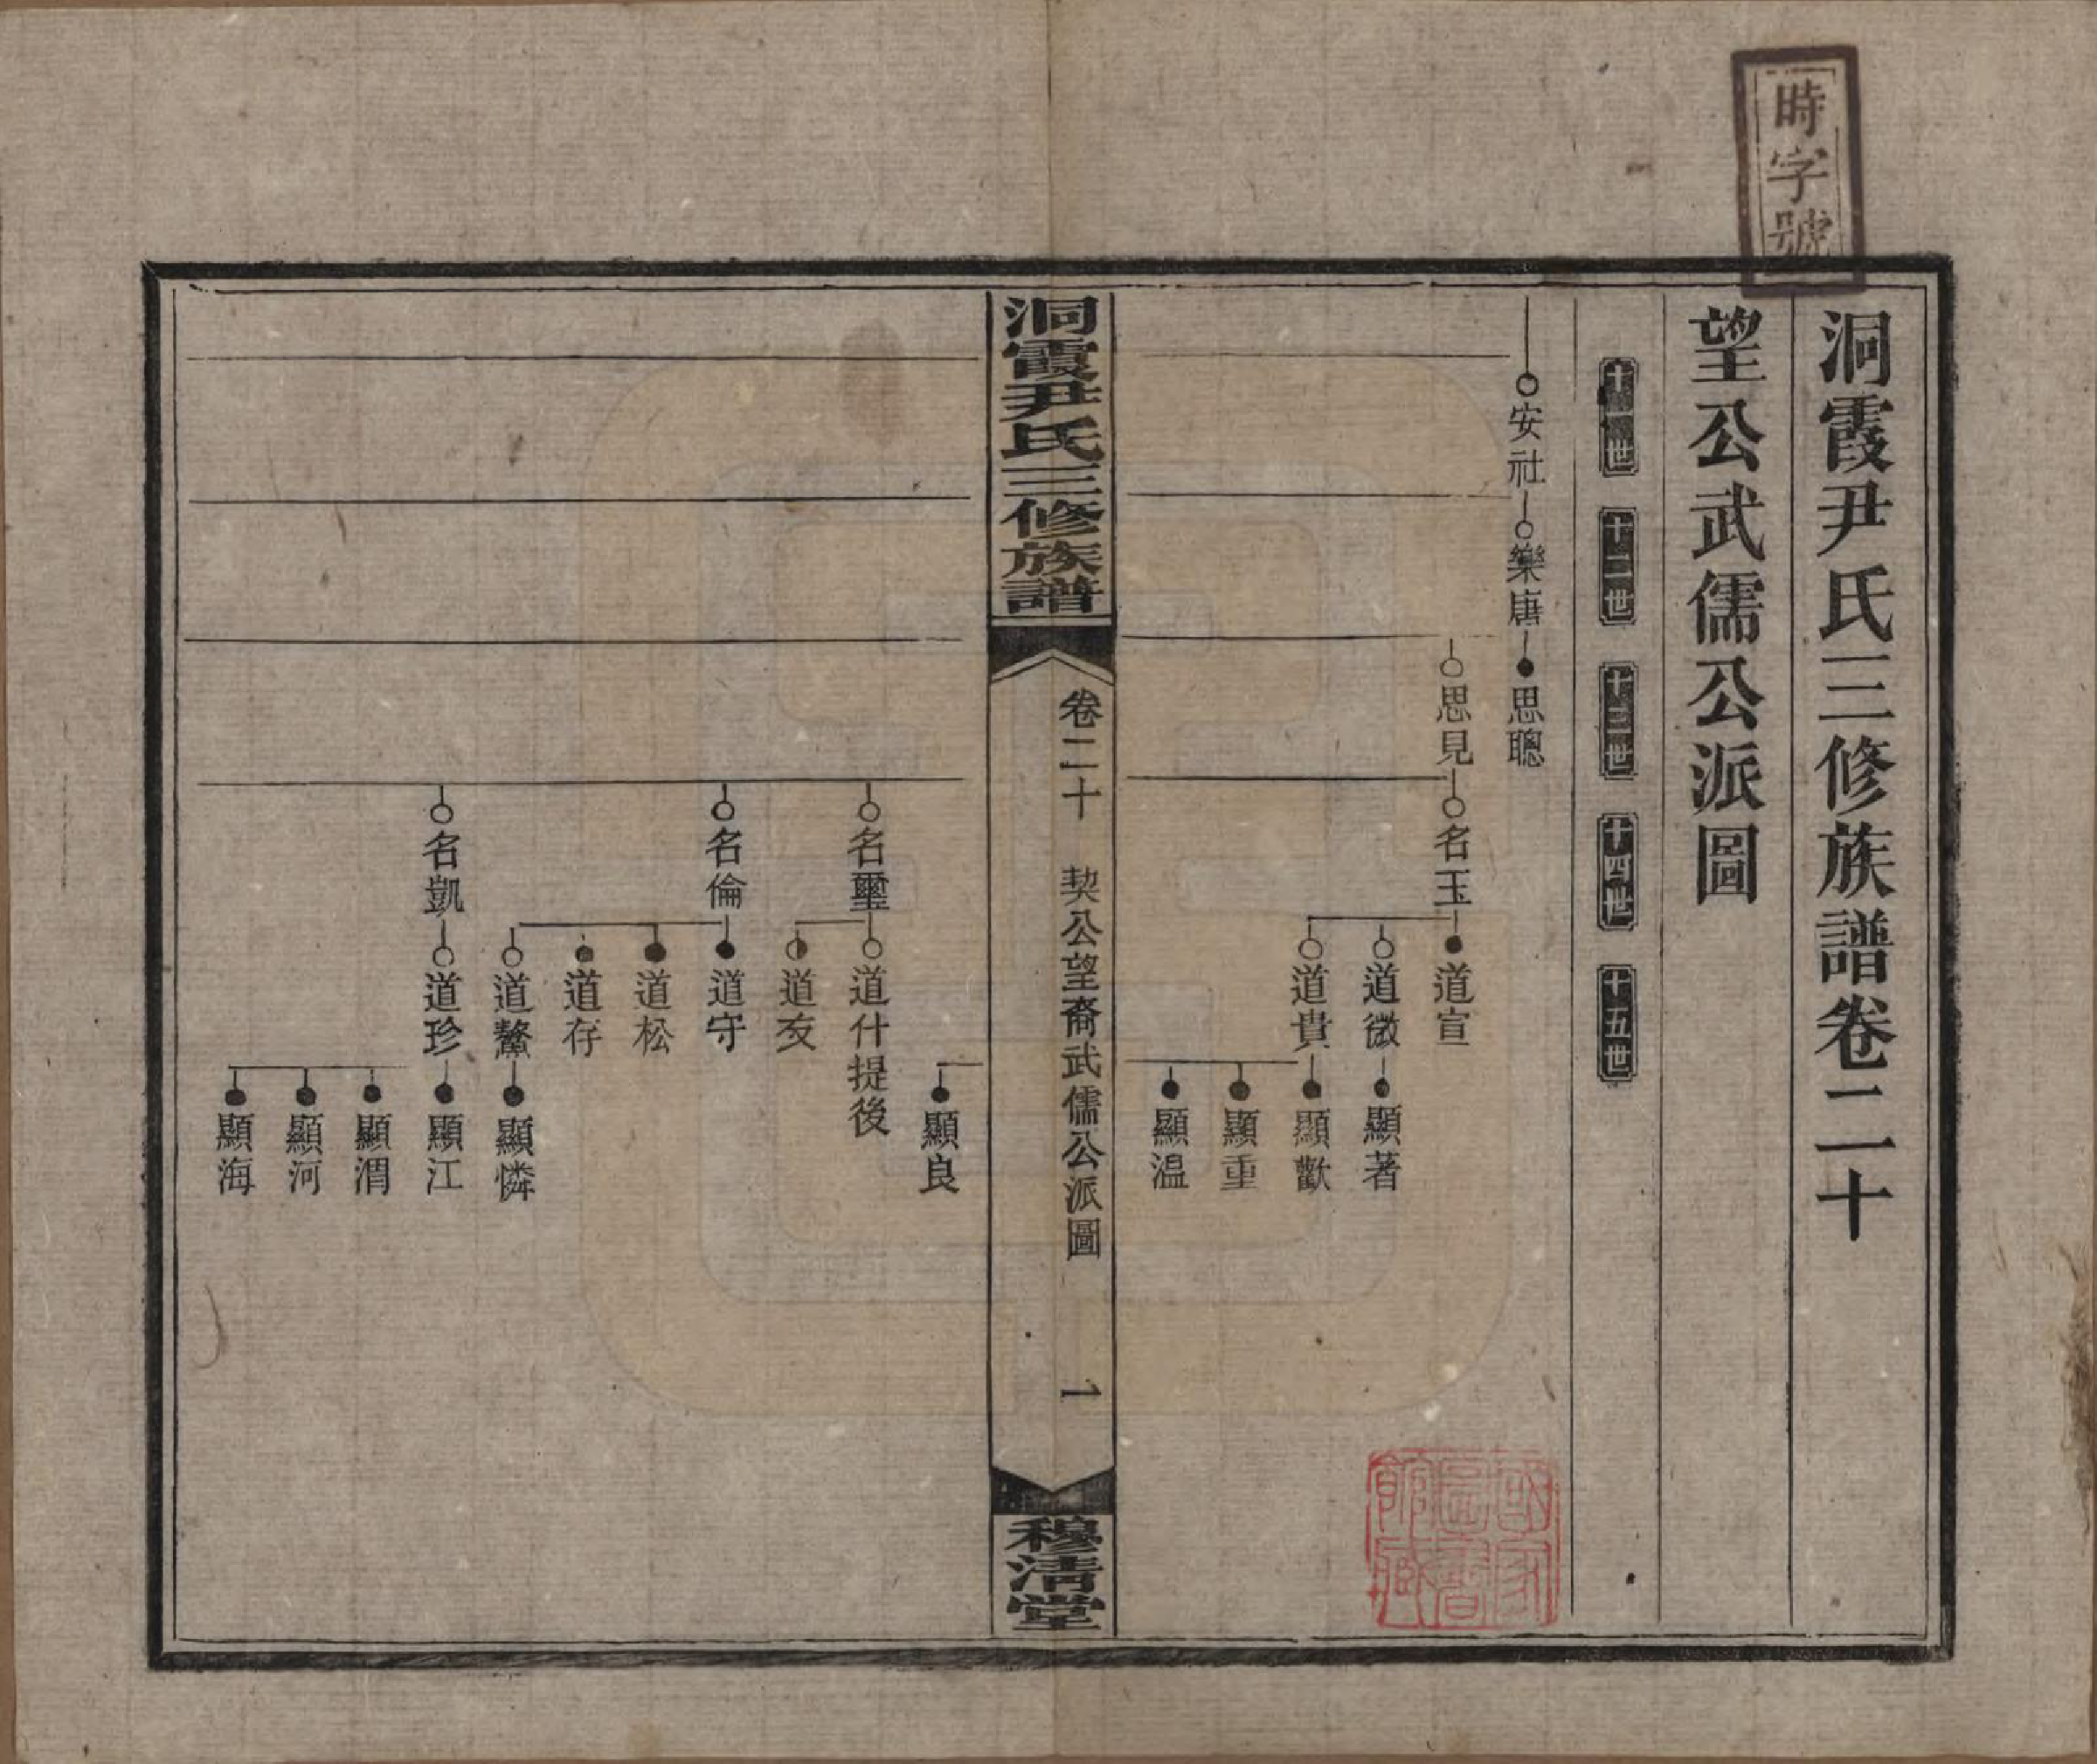 時字號
洞霞尹氏三修族譜卷二十
望公武儒公派圖
十一世
十二世
十三世
十四世
十五世
安社
樂唐
思聰
思見
名玉
道宣
道微
顯著
道貴
顯歡
顯重
顯温
洞霞尹氏三修族譜
卷二十 契公望裔武儒公派圖 一
穆清堂
顯良
名璽
道什提後
道友
名倫
道守
道松
道存
道鰲
顯憐
名凱
道珍
顯江
顯渭
顯河
顯海
國家
圖書
館藏